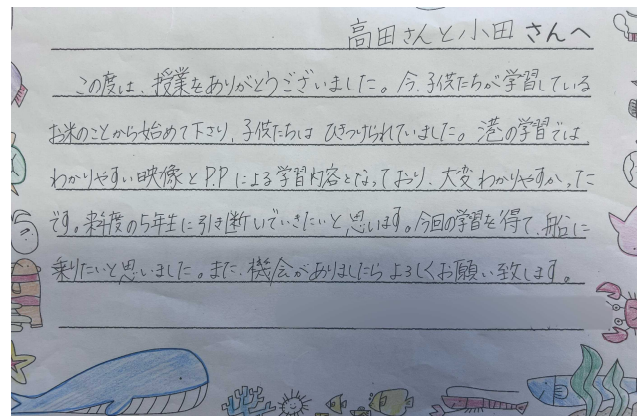 高田さんと小田さんへ
この度は、授業をありがとうございました。今、子供たちが学習している
お米のことから始めて下さり、子供たちは ひきつけられていました。港の学習では、
わかりやすい映像とP.Pによる学習内容となっており、大変わかりやすかった
です。来年度の5年生に引き継いでいきたいと思います。今回の学習を得て、船に
乗りたいと思いました。また、機会がありましたら よろしくお願い致します。